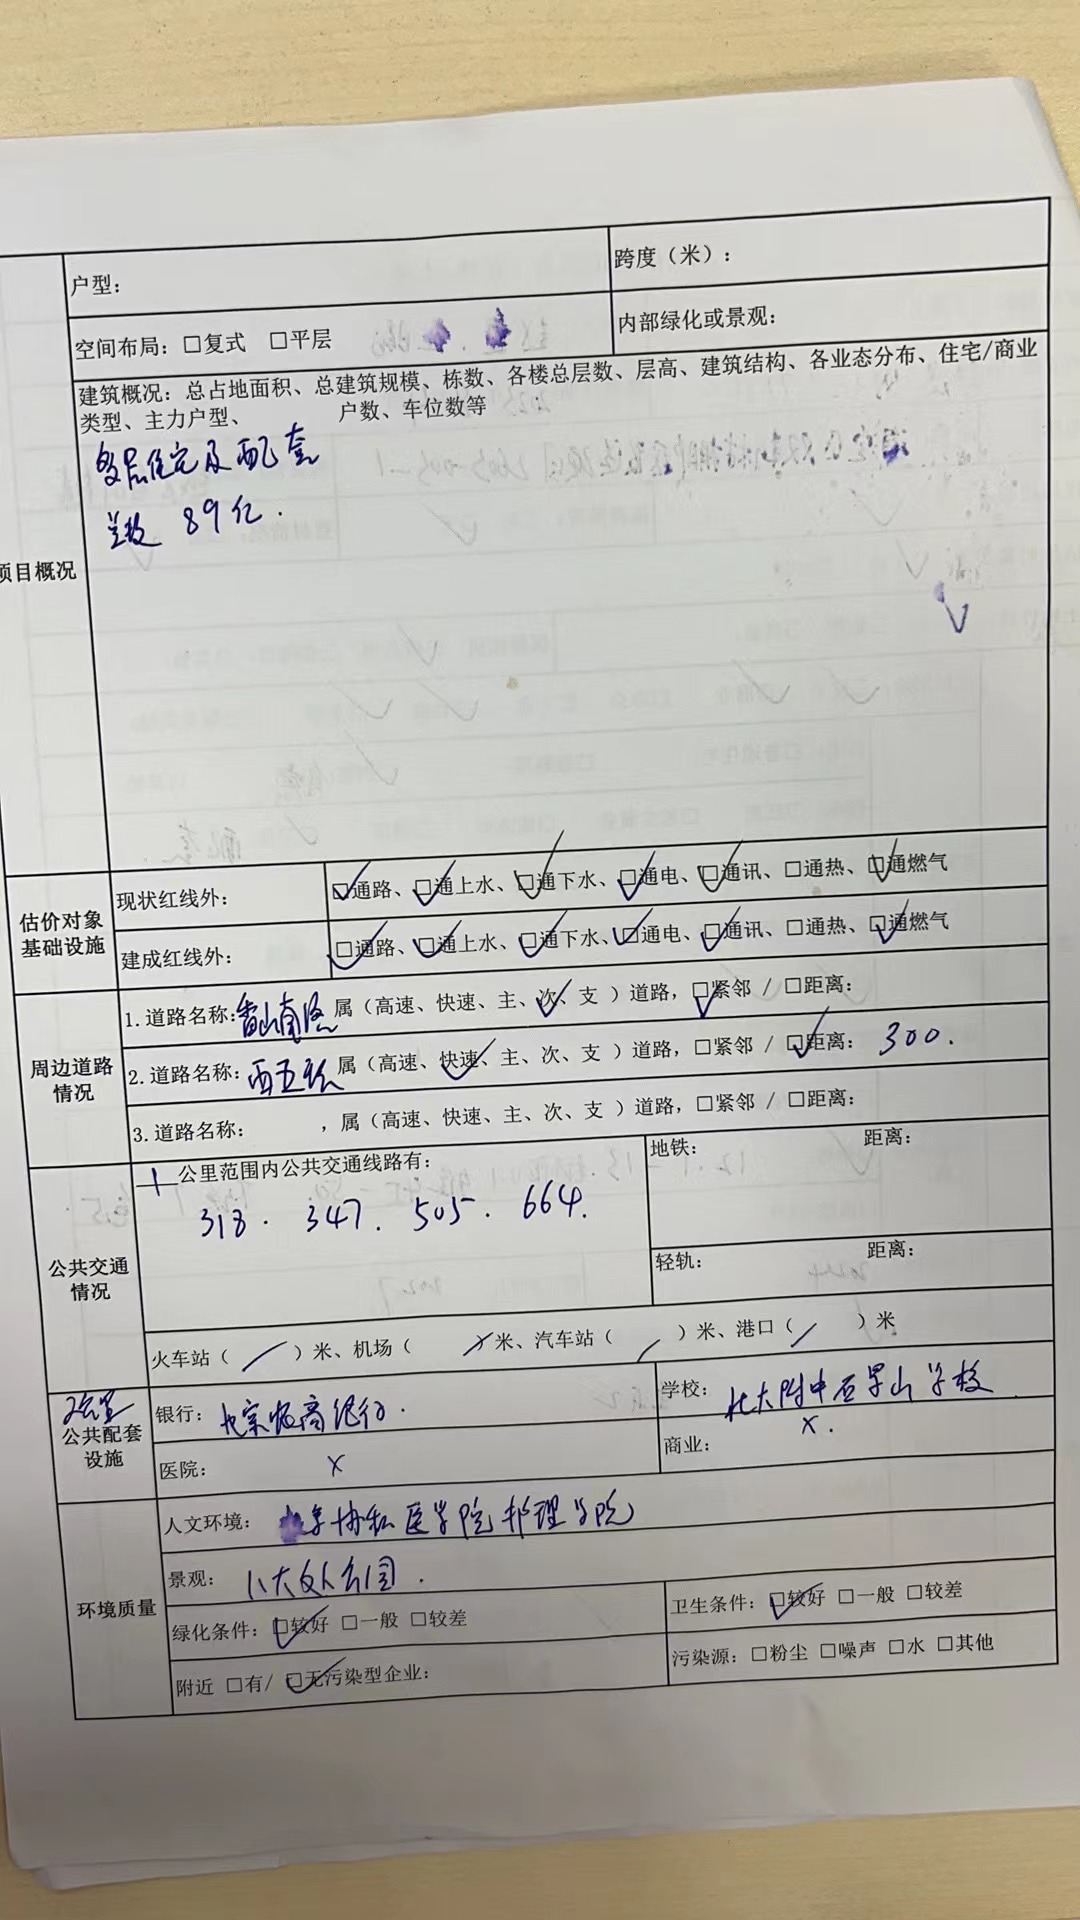 户型：
跨度（米）：
空间布局：□复式 □平层
内部绿化或景观：
项目概况
建筑概况：总占地面积、总建筑规模、栋数、各楼总层数、层高、建筑结构、各业态分布、住宅/商业
类型、主力户型、 户数、车位数等
住宅及配套
89亿.
估价对象
基础设施
现状红线外：
☑通路、☑通上水、☑通下水、☑通电、☑通讯、□通热、☑通燃气
建成红线外：
☑通路、☑通上水、☑通下水、☑通电、☑通讯、□通热、☑通燃气
周边道路
情况
1.道路名称：香山南路 属（高速、快速、主、次、支 ）道路，☑紧邻 / □距离：
2.道路名称：西五环 属（高速、快速、主、次、支 ）道路，□紧邻 / ☑距离： 300.
3.道路名称： ，属（高速、快速、主、次、支 ）道路，□紧邻 / □距离：
公共交通
情况
1 公里范围内公共交通线路有：
318. 347. 505. 664.
地铁： 距离：
轻轨： 距离：
火车站（ / ）米、机场（ / 米、汽车站（ / ）米、港口（ / ）米
2公里
公共配套
设施
银行：北京农商银行.
学校：北大附中石景山学校.
医院： X
商业： X.
环境质量
人文环境： 协和医学院护理学院
景观：八大处公园.
绿化条件：☑较好 □一般 □较差
卫生条件：☑较好 □一般 □较差
附近 □有/ ☑无污染型企业：
污染源：□粉尘 □噪声 □水 □其他